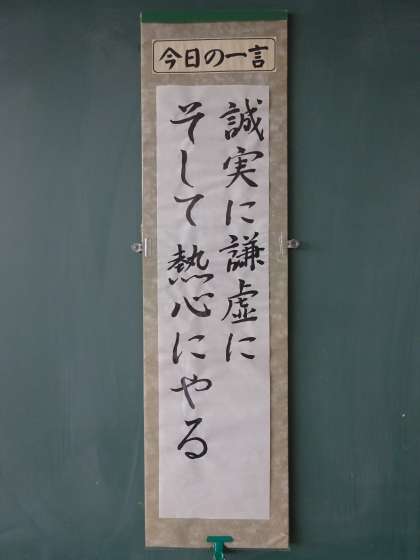 今日の一言
誠実に謙虚に
そして熱心にやる